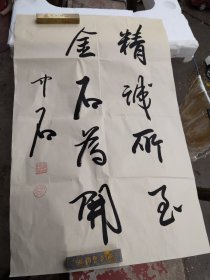 精诚所至
金石為開
中石